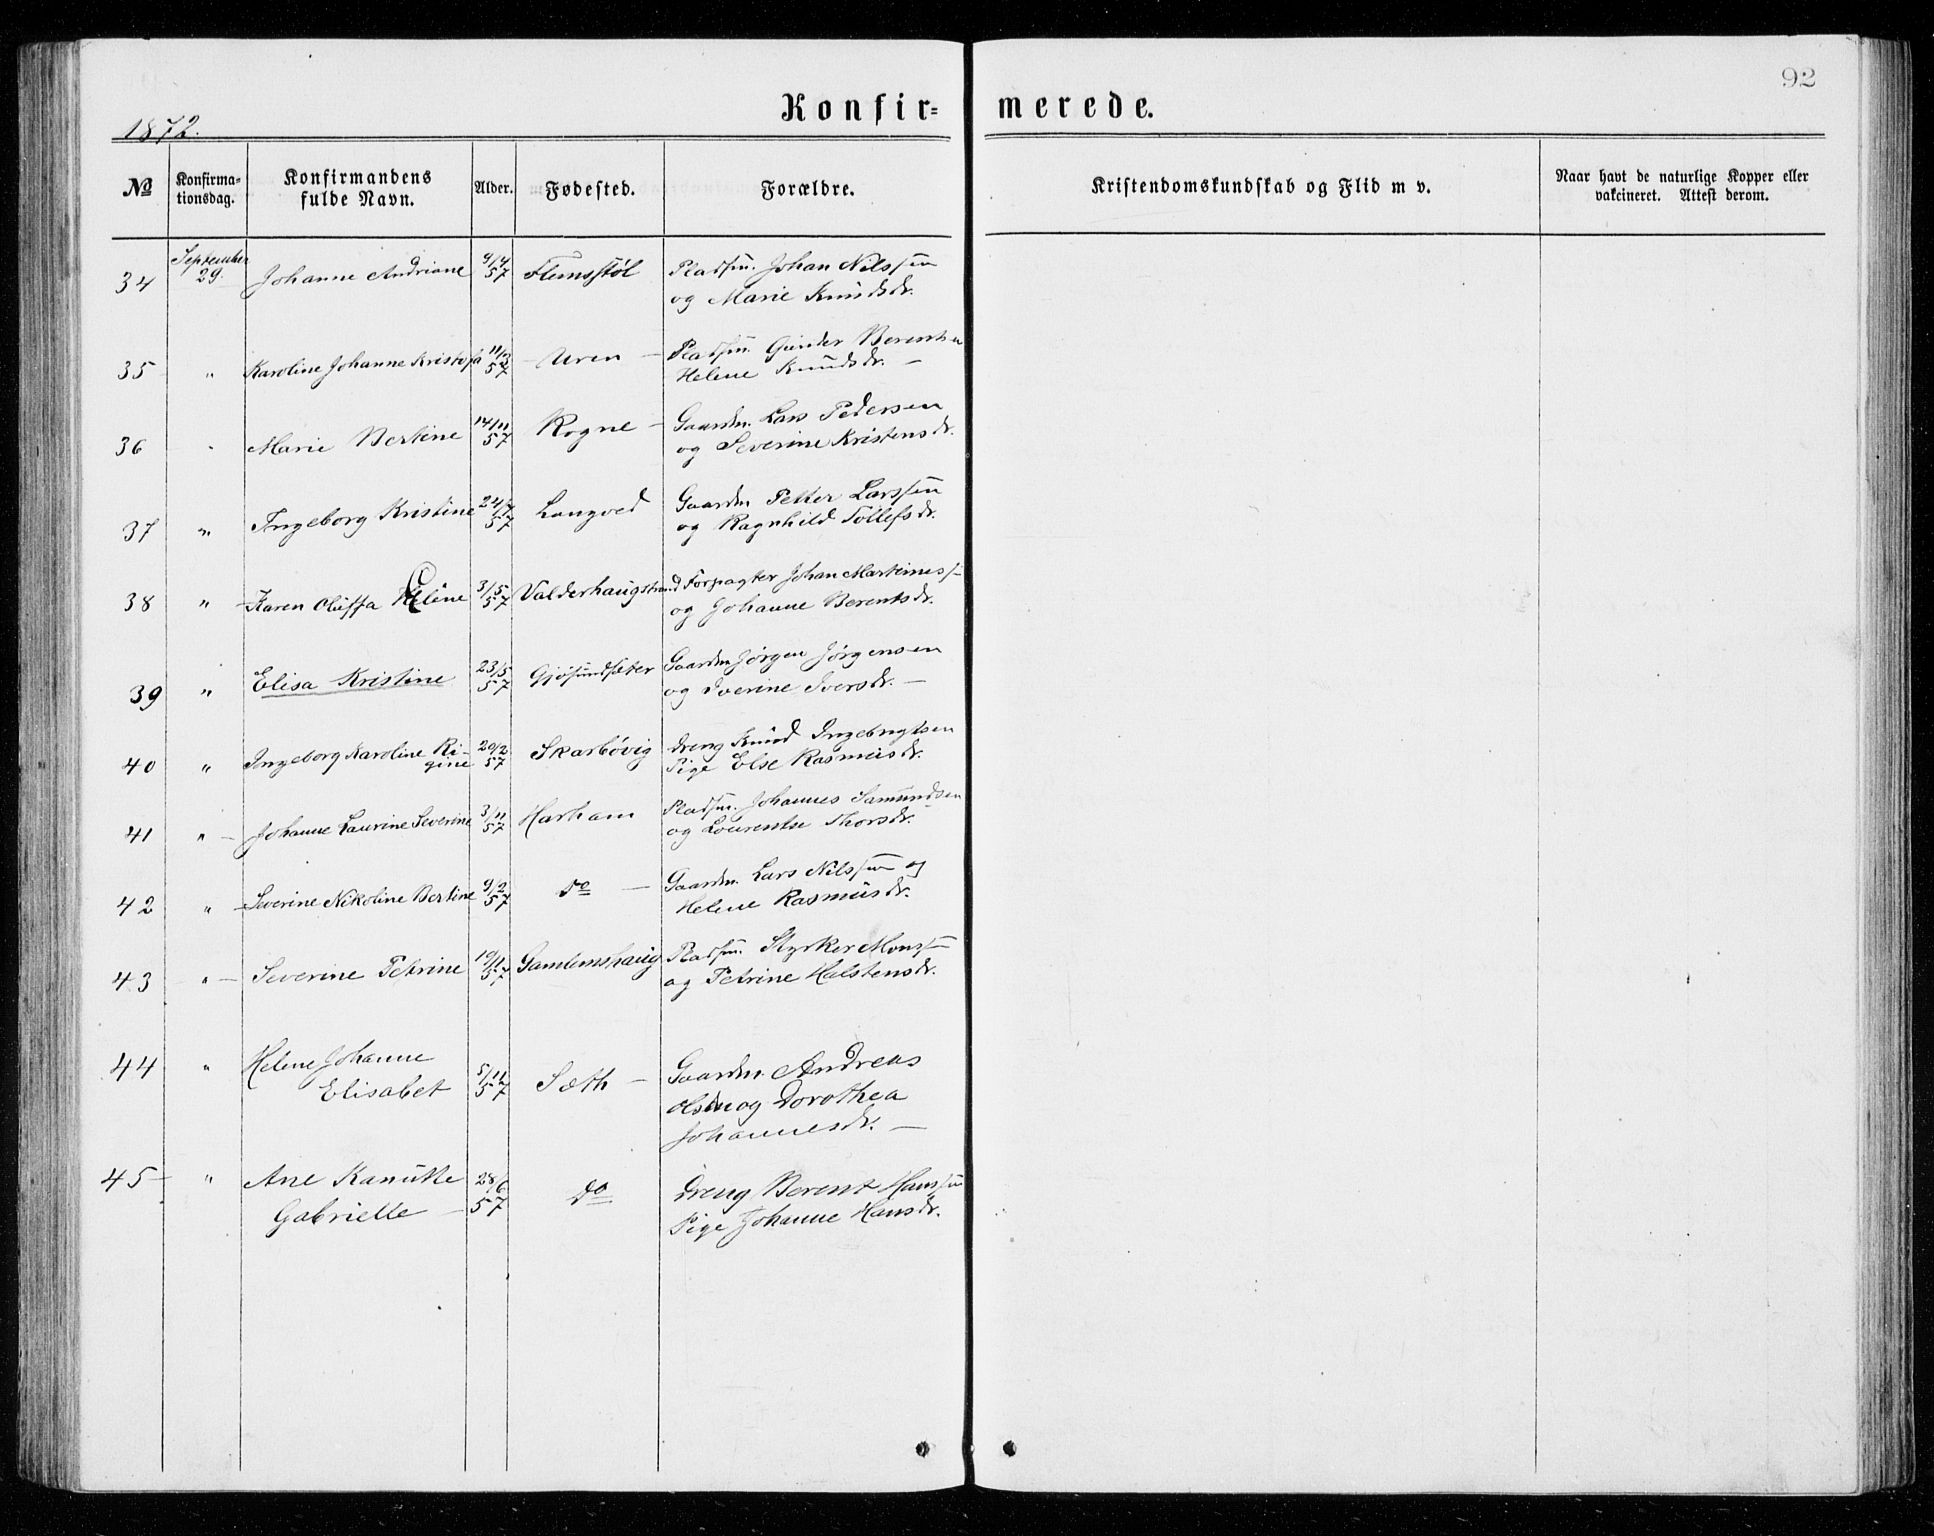 92
Konfir= merede.
1872.
№ Konfirma-tionsdag. Konfirmandens fulde Navn. Alder. Fødested. Forældre. Kristendomskundskab og Flid m v. Naar havt de naturlige Kopper eller vakcineret. Attest derom.
34 September 29 Johanne Andriane 9/4 57 Flemsstøl Pladsm. Johan Nilssen
og Marie Knudsdr.
35 " Karoline Johanne Kristofa 11/3 57 Uren Pladsm. Gunder Berentsen
Helene Knudsdr.
36 " Marie Bertine 14/11 57 Rogne Gaardm. Lars Pedersen
og Severine Kristensdr.
37 " Ingeborg Kristine 24/7 57 Longved Gaardm Petter Larssen
og Ragnhild Tollefsdr.
38 " Karen Oluffa Eline 3/5 57 Valderhaugstrand Forpagter Johan Martinuss
og Johanne Berentsdr.
39 " Elisa Kristine 23/5 57 Gjøsundseter Gaardm Jørgen Jørgensen
og Iverine Iversdr.
40 " Ingeborg Karoline Ri-
gine 20/2 57 Skarbövig Dreng Knud Ingebrigtsen
Pige Else Rasmusdr.
41 " Johanne Laurine Severine 3/11 57 Harham Pladsm. Johannes Samundsen
og Lourentse Thorsdr.
42 " Severine Nikoline Bertine 9/2 57 do Gaardm. Lars Nilssen og
Helene Rasmusdr.
43 " Severine Petrine 10/11 57 Gamlemshaug Pladsm. Styrker Monss
og Petrine Halstensdr.
44 " Helene Johanne
Elisabet 5/11 57 Sæth Gaardm. Andreas
Olsen og Dorothea
Johannesdr.
45 " Ane Kanutte
Gabrielle 28/6 57 do Dreng Berent Hanssen
Pige Johanne Hansdr.